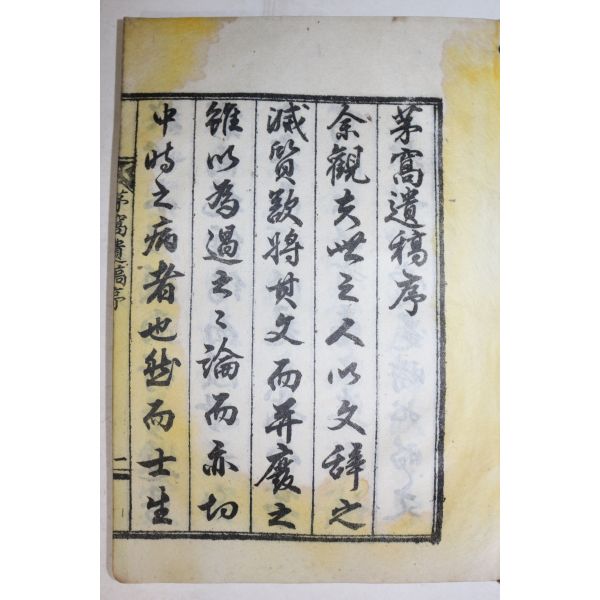 茅窩遺稿序
余觀夫世之人以文辭之
滅質欲將其文而並廢之
雖以為過之之論而亦切
中時之病者也然而士生
茅窩遺稿序
一